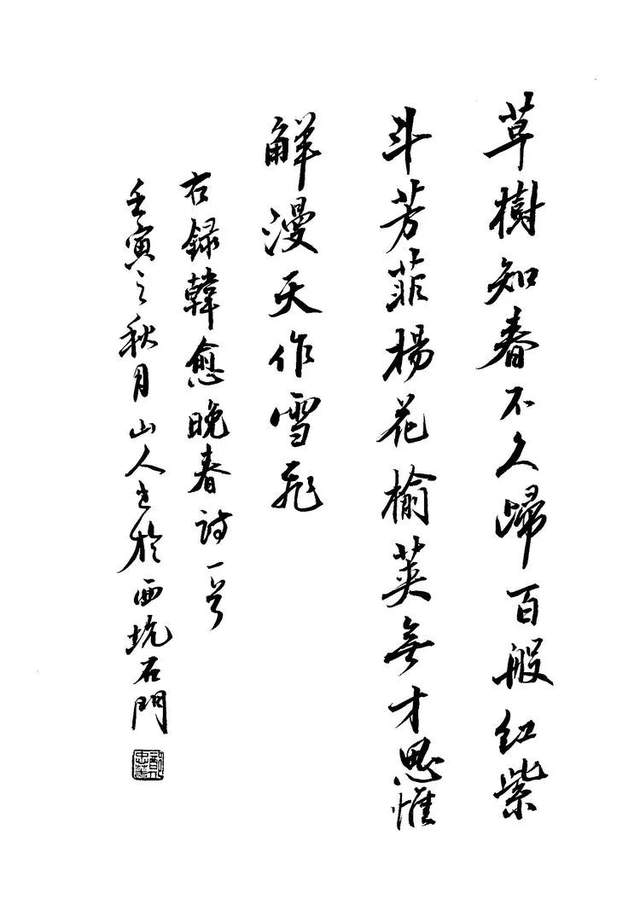 草樹知春不久歸百般紅紫
斗芳菲楊花榆荚無才思惟
解漫天作雪飛
右録韓愈晚春詩一首
壬寅之秋月山人书於西坑石門